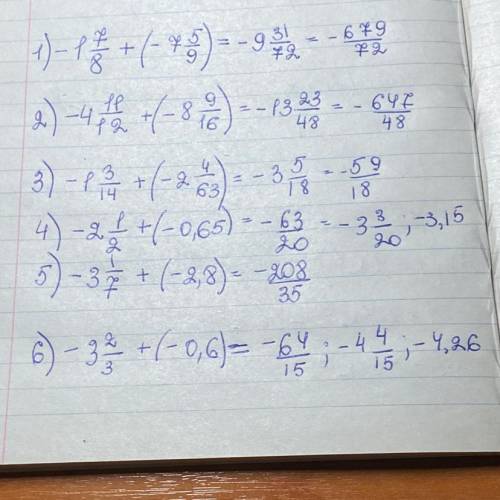 1) -1 7/8 + (-7 5/9) = -9 31/72 = -679/72
2) -4 11/12 + (-8 9/16) = -13 23/48 = -647/48
3) -1 3/14 + (-2 4/63) = -3 5/18 = -59/18
4) -2 1/2 + (-0,65) = -63/20 = -3 3/20 ; -3,15
5) -3 1/7 + (-2,8) = -208/35
6) -3 2/3 + (-0,6) = -64/15 ; -4 4/15 ; -4,26